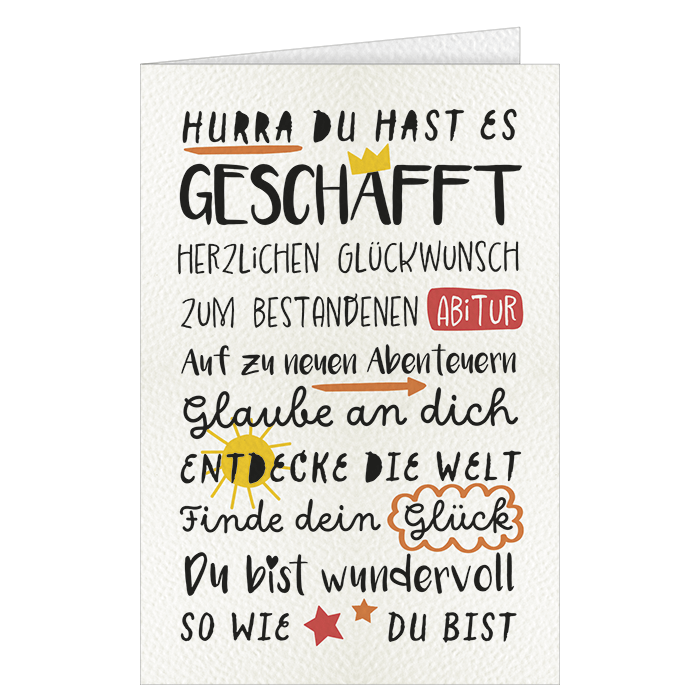 HURRA DU HAST ES
GESCHAFFT
HERZLiCHEN GLÜCKWUNSCH
ZUM BESTANDENEN ABiTUR
Auf zu neuen Abenteuern
Glaube an dich
ENTDECKE DIE WELT
Finde dein Glück
Du bist wundervoll
SO WIE DU BIST